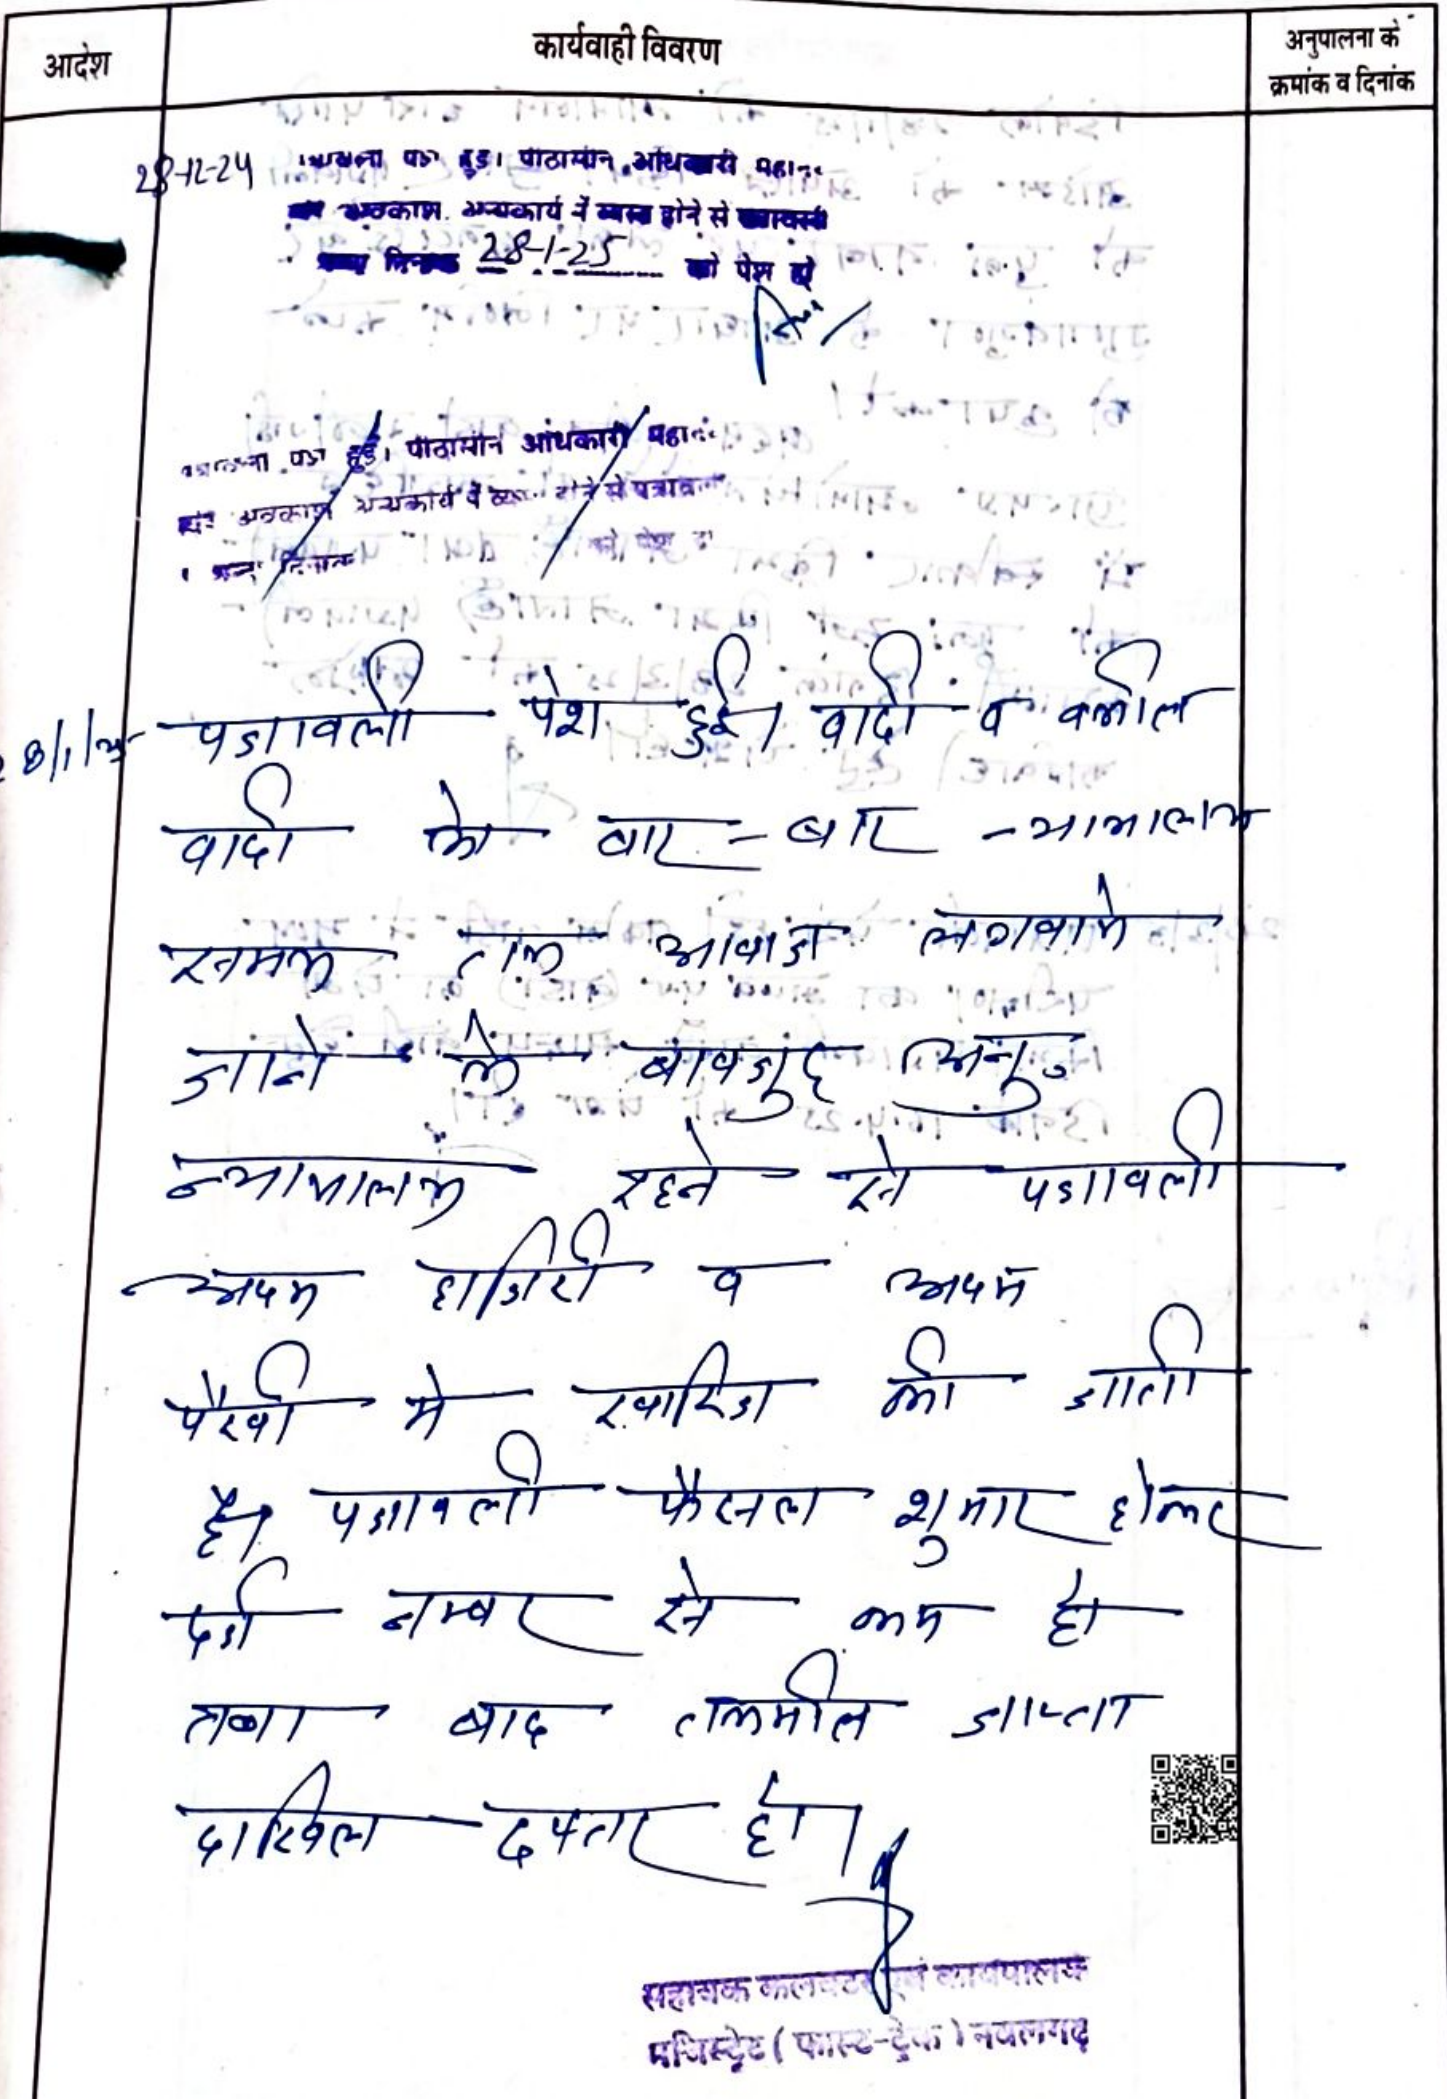 आदेश
कार्यवाही विवरण
अनुपालना के
क्रमांक व दिनांक
28-12-24
हुई। पीठासीन अधिकारी
अवकाश अन्यकार्य में व्यस्त होने से
दिनांक 28-1-25 को पेश हो
हुई। पीठासीन अधिकारी
अवकाश अन्यकार्य में होने से
दिनांक को पेश
28/1/25 पत्रावली पेश हुई। वादी व वकील
वादी को बार-बार न्यायालय
समय तक आवाज लगवाये
जाने के बावजूद अनु०
न्यायालय रहने से पत्रावली
अदम हाजिरी व अदम
पैरवी मे खारिज की जाती
है। पत्रावली फैसल शुमार होकर
दर्ज नम्बर से कम हो
तथा बाद तकमील जाप्ता
दाखिल दफ्तर हो।
सहायक कलक्टर एवं कार्यपालक
मजिस्ट्रेट (फास्ट-ट्रेक) नवलगढ़